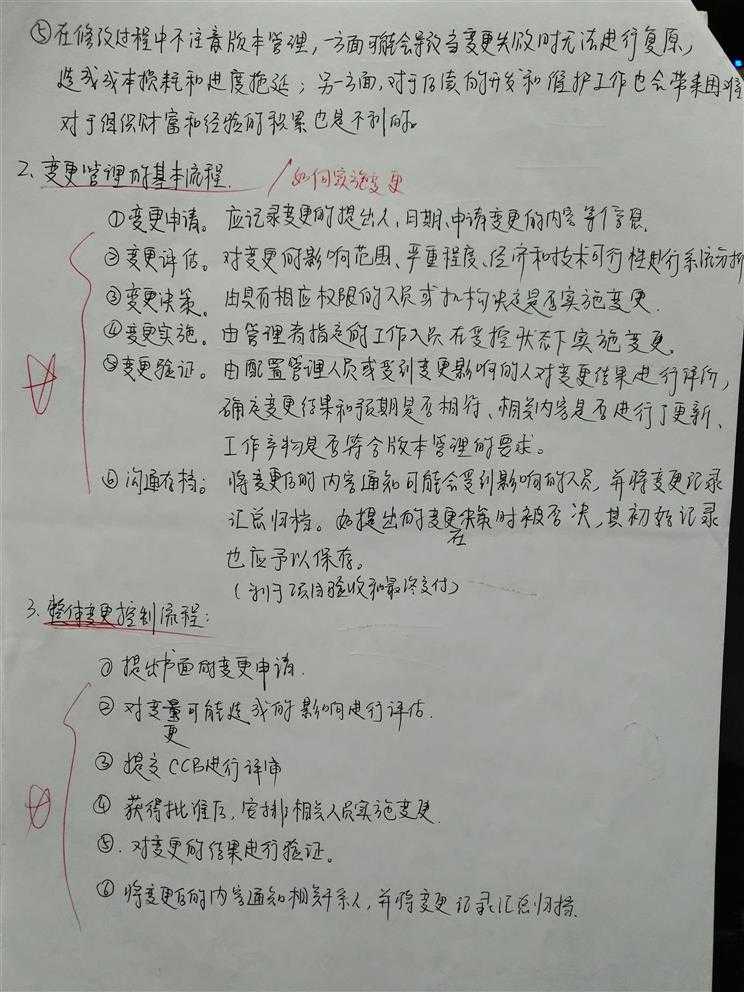 ⑤在修改过程中不注意版本管理,一方面可能会导致当变更失败时无法进行复原,
造成成本损耗和进度拖延;另一方面,对于后续的开发和维护工作也会带来困难
对于组织财富和经验的积累也是不利的。
2、变更管理的基本流程. /如何实施变更
①变更申请。应记录变更的提出人、日期、申请变更的内容等信息.
②变更评估。对变更的影响范围、严重程度、经济和技术可行性进行系统分析
③变更决策。由具有相应权限的人员或机构决定是否实施变更.
④变更实施。由管理者指定的工作人员在受控状态下实施变更.
⑤变更验证。由配置管理人员或受到变更影响的人对变更结果进行评价,
确定变更结果和预期是否相符、相关内容是否进行了更新、
工作产物是否符合版本管理的要求。
⑥沟通存档:将变更后的内容通知可能会受到影响的人员,并将变更记录
汇总归档。如提出的变更在决策时被否决,其初始记录
也应予以保存。
(利于项目验收和最终交付)
3.整体变更控制流程:
①提出书面的变更申请.
②对变更可能造成的影响进行评估.
③提交CCB进行评审
④获得批准后,安排相关人员实施变更.
⑤.对变更的结果进行验证。
⑥将变更后的内容通知相关干系人,并将变更记录汇总归档.